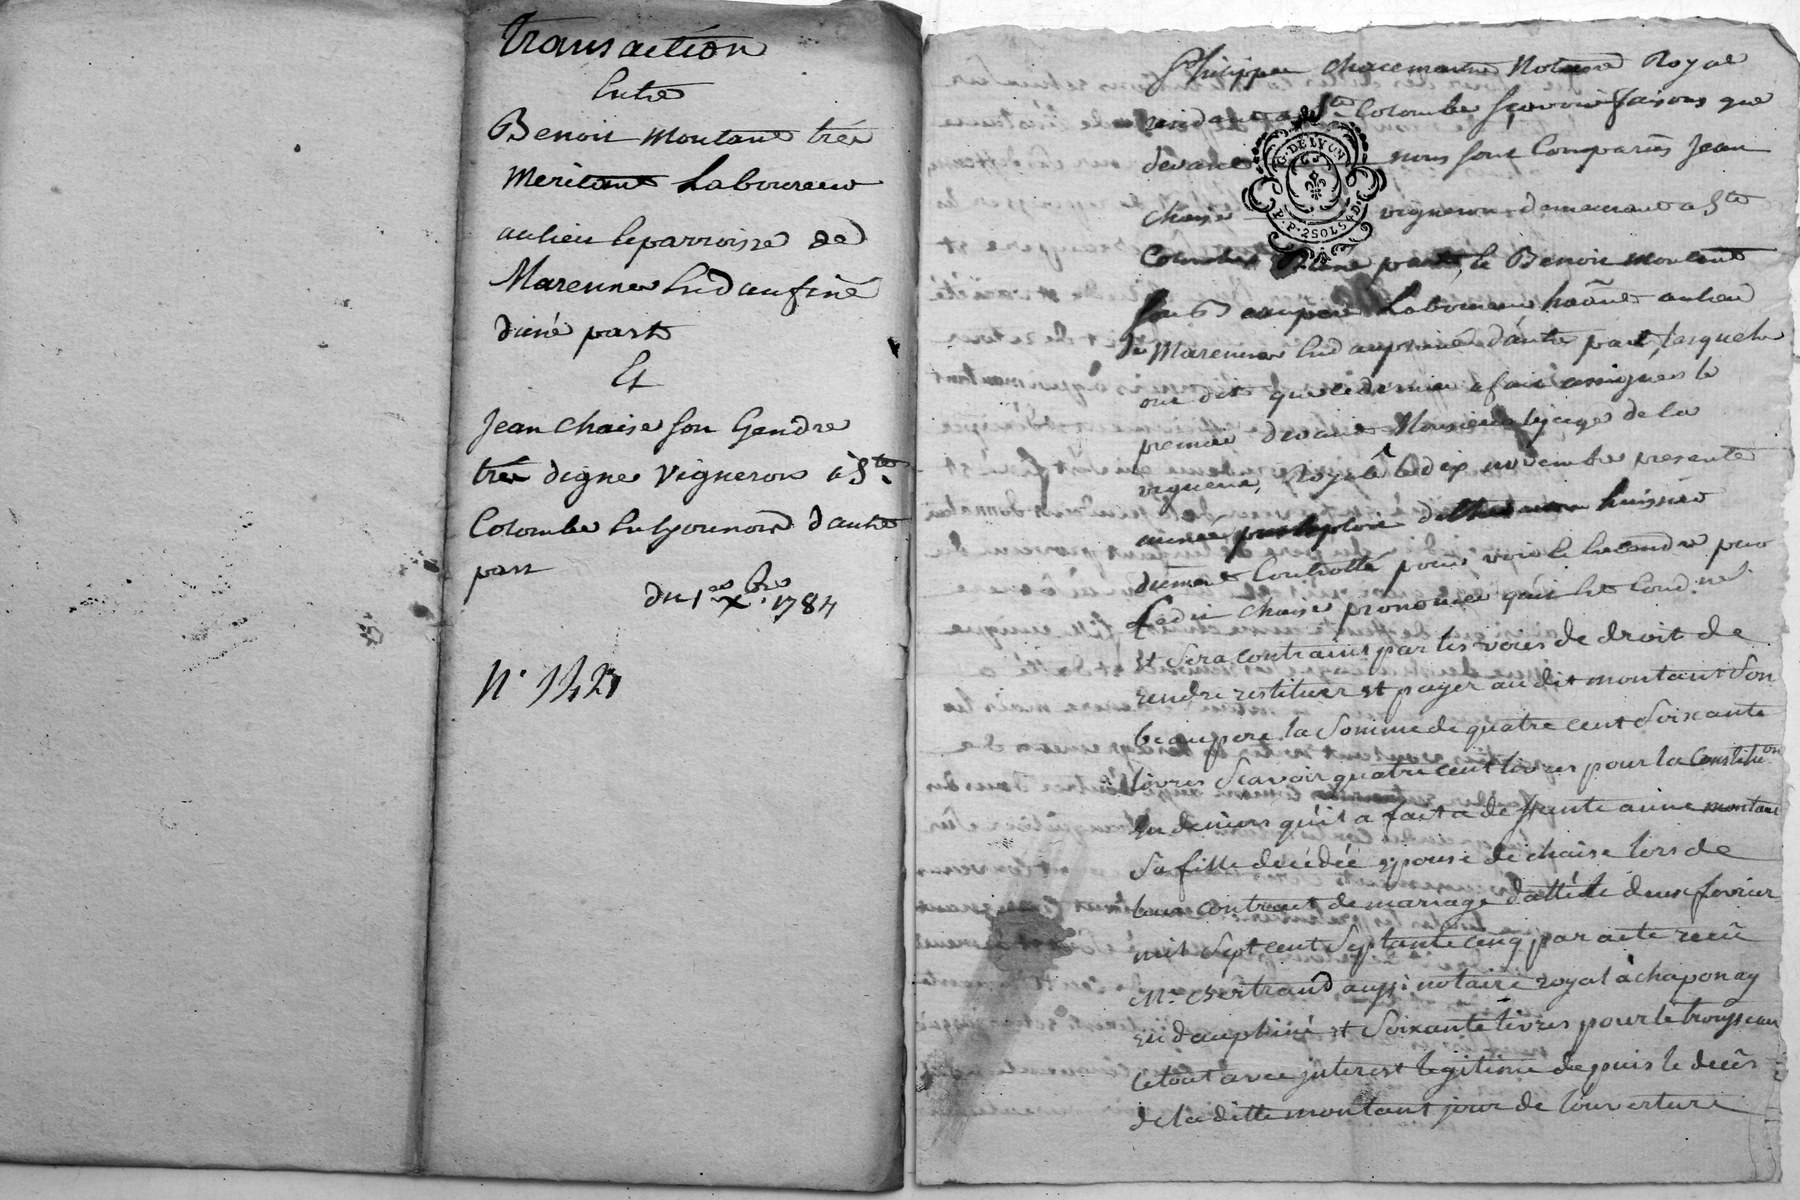 transaction
Entre
Benoit montant trés
meritant Laboureur
au lieu & parroisse de
Marennes En daufiné
d'uné part
Et
Jean chaise son Gendre
trés digne vigneron à Ste
Colombe En lyonnois d'autre
part
du 1er xbre 1784
N. 142
Philippe chacemartin Notaire Royal
residant a Ste Colombe sçavoir faisons que
devant nous sont Comparus Jean
chaise vigneron demeurant a Ste
Colombe d'une part, & Benoit montant
son Beaupere Laboureur au lieu
de Marennes En dauphiné d'autre part, lesquels
ont dit que ce dernier a fait assigner le
premier devant Monsieur le juge de la
viguerie Royale le dix novembre presente
année par exploit de huissier
dument Controllé pour voir & Entendre par
Ledit chaise prononcer qu'il Est Cond.né
et sera contraint par les voies de droit de
rendre restituer et payer au dit montant son
beaupere la somme de quatre cent soixante
livres sçavoir quatre cent livres pour la Constitu.on
En deniers qu'il a fait a defunte anne montant
sa fille decédée epouse de chaise lors de
leur contract de mariage datté de deux fevrier
mil sept cent septante cinq par acte recû
Me Bertrand aussi notaire royal à chaponay
en dauphiné et soixante livres pour le trousseau
le tout avec interest legitime depuis le decés
de la ditte montant jour de l'ouverture
G. DE LYON
P. P. 2 SOLS 4 D.